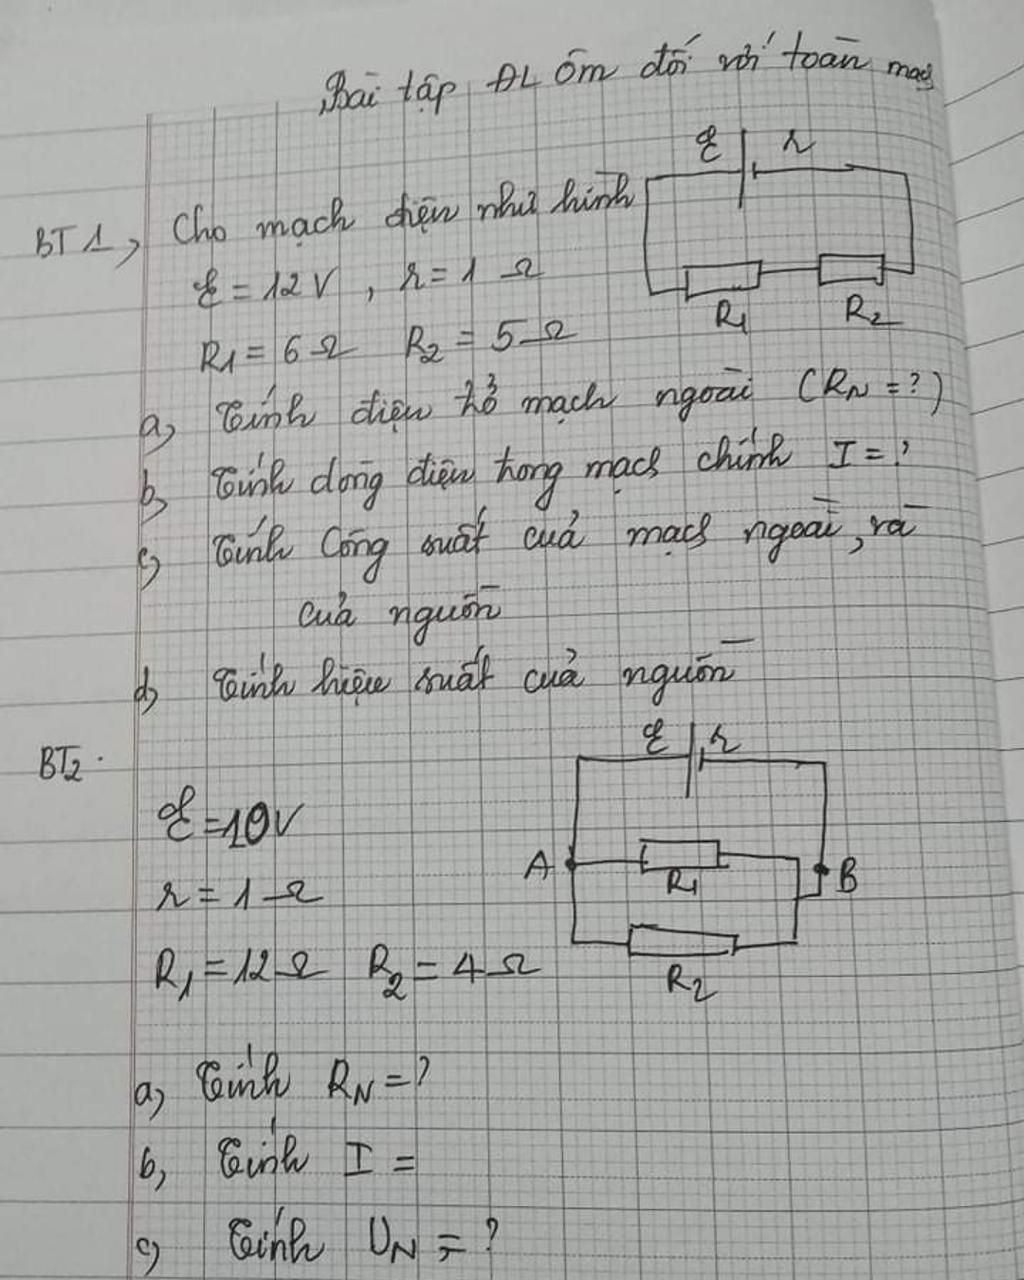 Bài tập ĐL Ôm đối với toàn mạch
ℰ r
BT1, Cho mạch điện như hình
ℰ = 12V, r = 1 Ω
R1 R2
R1 = 6Ω R2 = 5Ω
a, Tính điện trở mạch ngoài (RN = ?)
b, Tính dòng điện trong mạch chính I = ?
c, Tính Công suất của mạch ngoài, và
của nguồn
d, Tính hiệu suất của nguồn
BT2.
ℰ r
ℰ = 10V
A R1 B
r = 1Ω
R1 = 12Ω R2 = 4Ω
R2
a, Tính RN = ?
b, Tính I =
c, Tính UN = ?